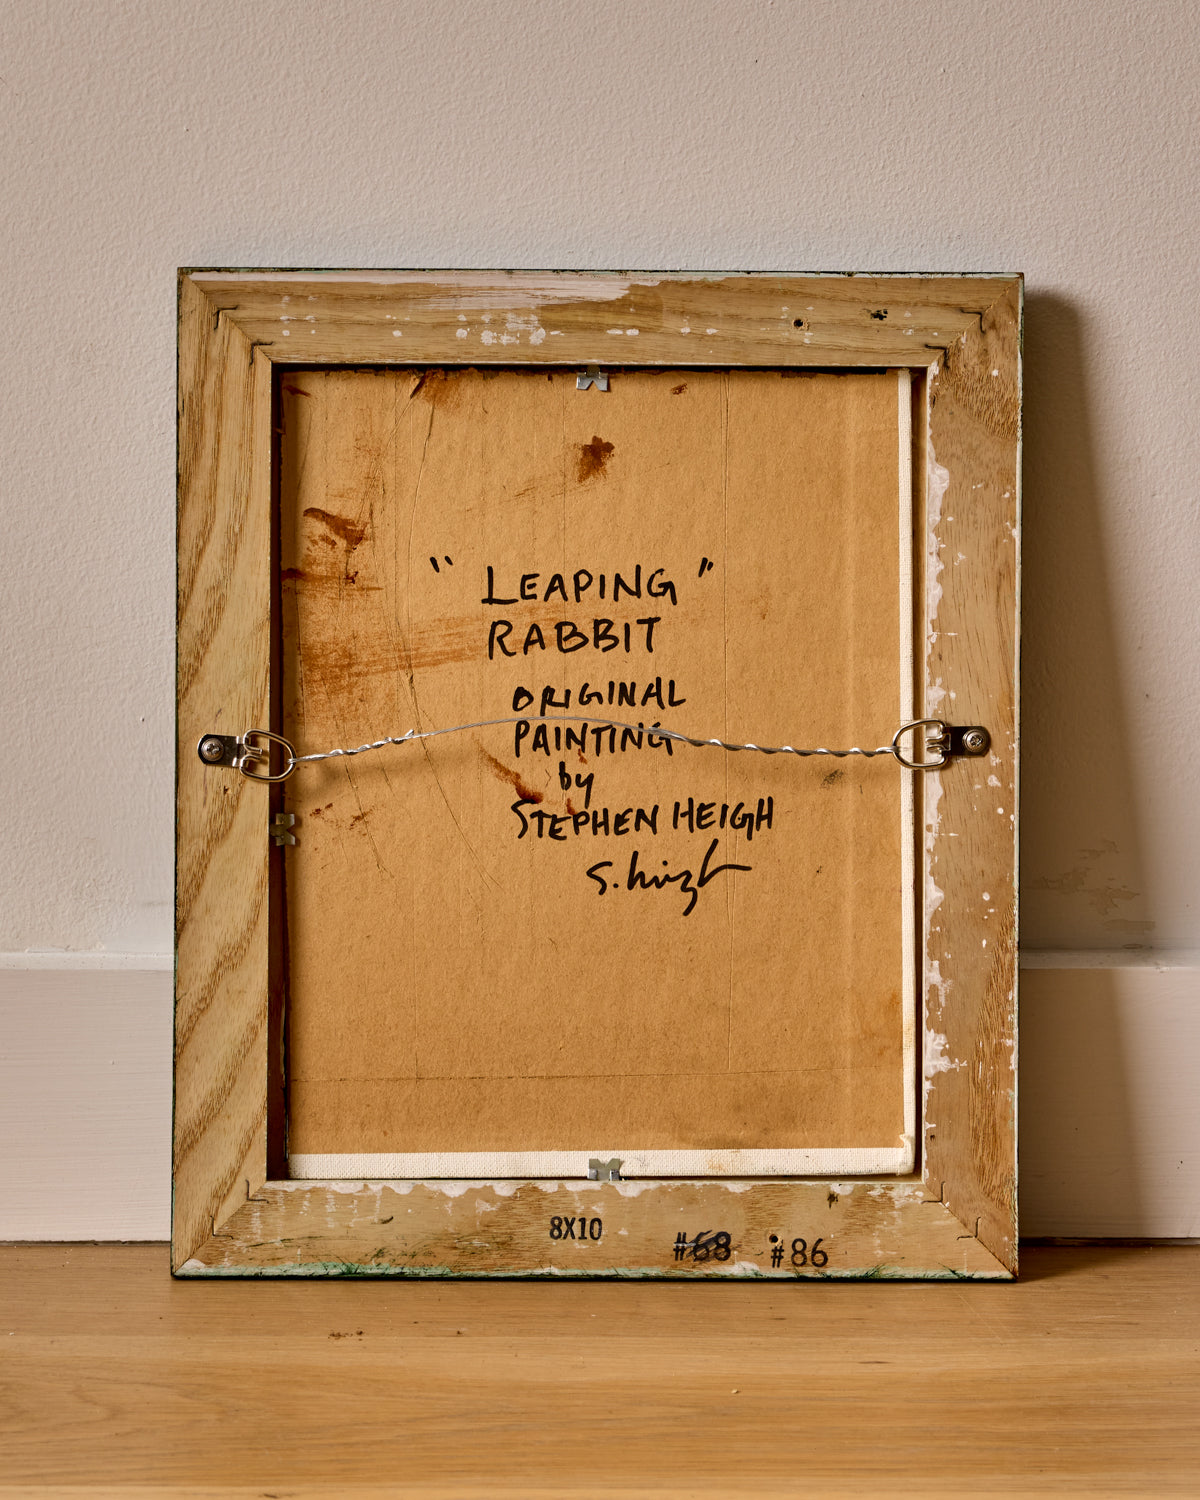 "LEAPING"
RABBIT
ORIGINAL
PAINTING
by
STEPHEN HEIGH
S. Heigh
8X10
#68 #86